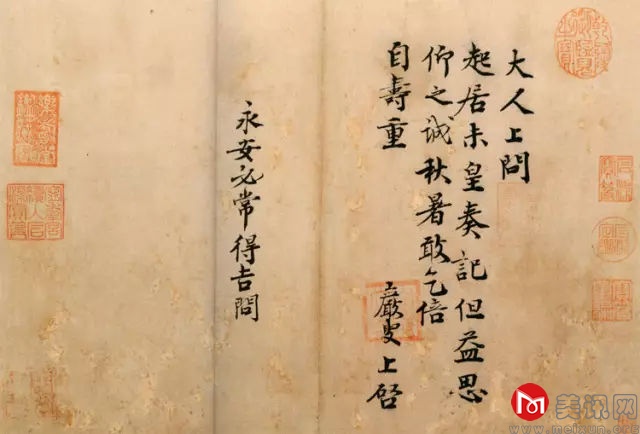 大人上問
起居未皇奏記但益思
仰之誠秋暑敢乞倍
自壽重
巖叟上啓
永安必常得吉問
美讯网